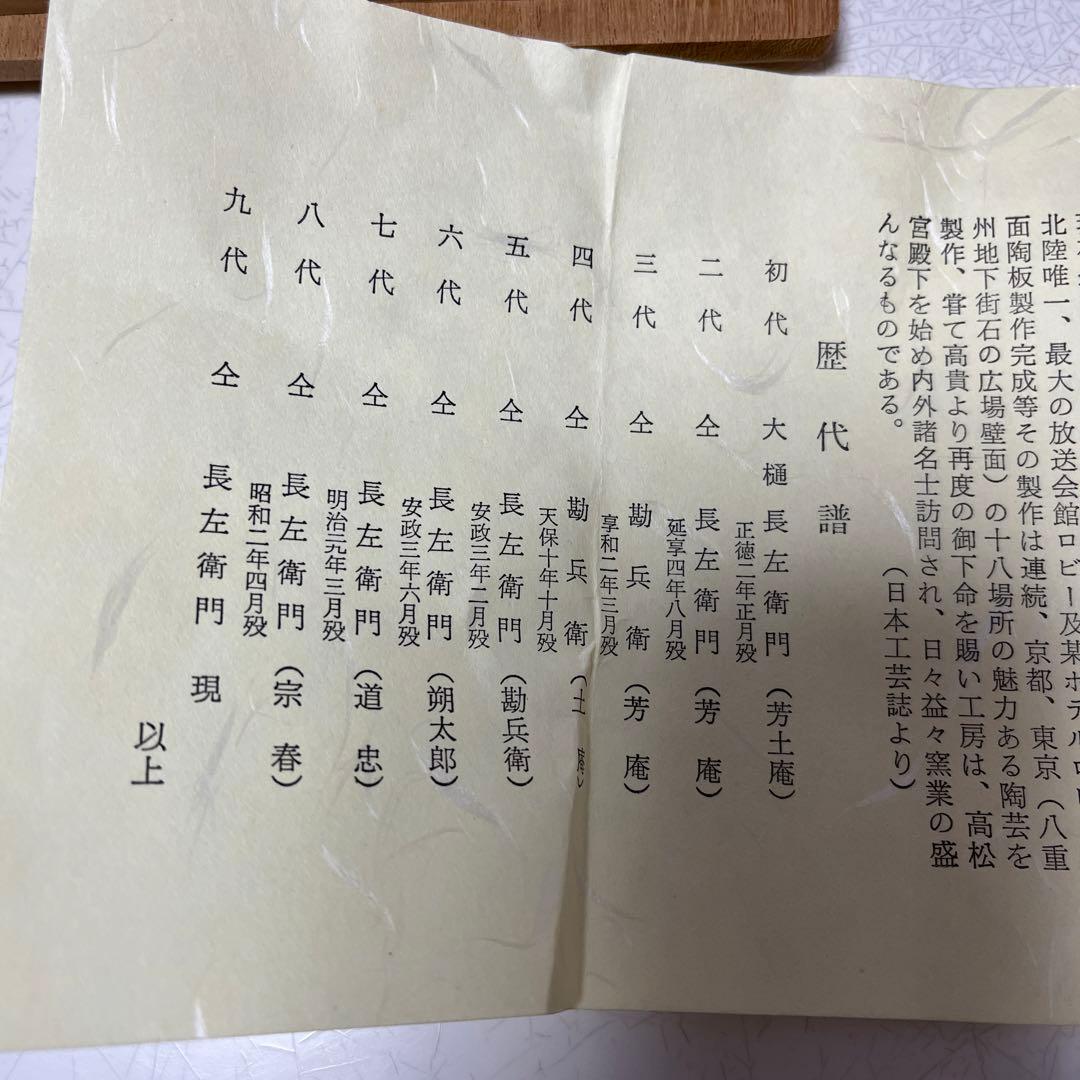 北陸唯一、最大の放送会館ロビー及某ホテルロ
面陶板製作完成等その製作は連続、京都、東京（八重
州地下街石の広場壁面）の十八場所の魅力ある陶芸を
製作、甞て高貴より再度の御下命を賜い工房は、高松
宮殿下を始め内外諸名士訪問され、日々益々窯業の盛
んなるものである。
（日本工芸誌より）
歴代譜
初代 大樋 長左衛門（芳土庵）
正徳二年正月歿
二代 仝 長左衛門（芳庵）
延享四年八月歿
三代 仝 勘兵衛（芳庵）
享和二年三月歿
四代 仝 勘兵衛（土庵）
天保十年十月歿
五代 仝 長左衛門（勘兵衛）
安政三年二月歿
六代 仝 長左衛門（朔太郎）
安政三年六月歿
七代 仝 長左衛門（道忠）
明治元年三月歿
八代 仝 長左衛門（宗春）
昭和二年四月歿
九代 仝 長左衛門 現
以上